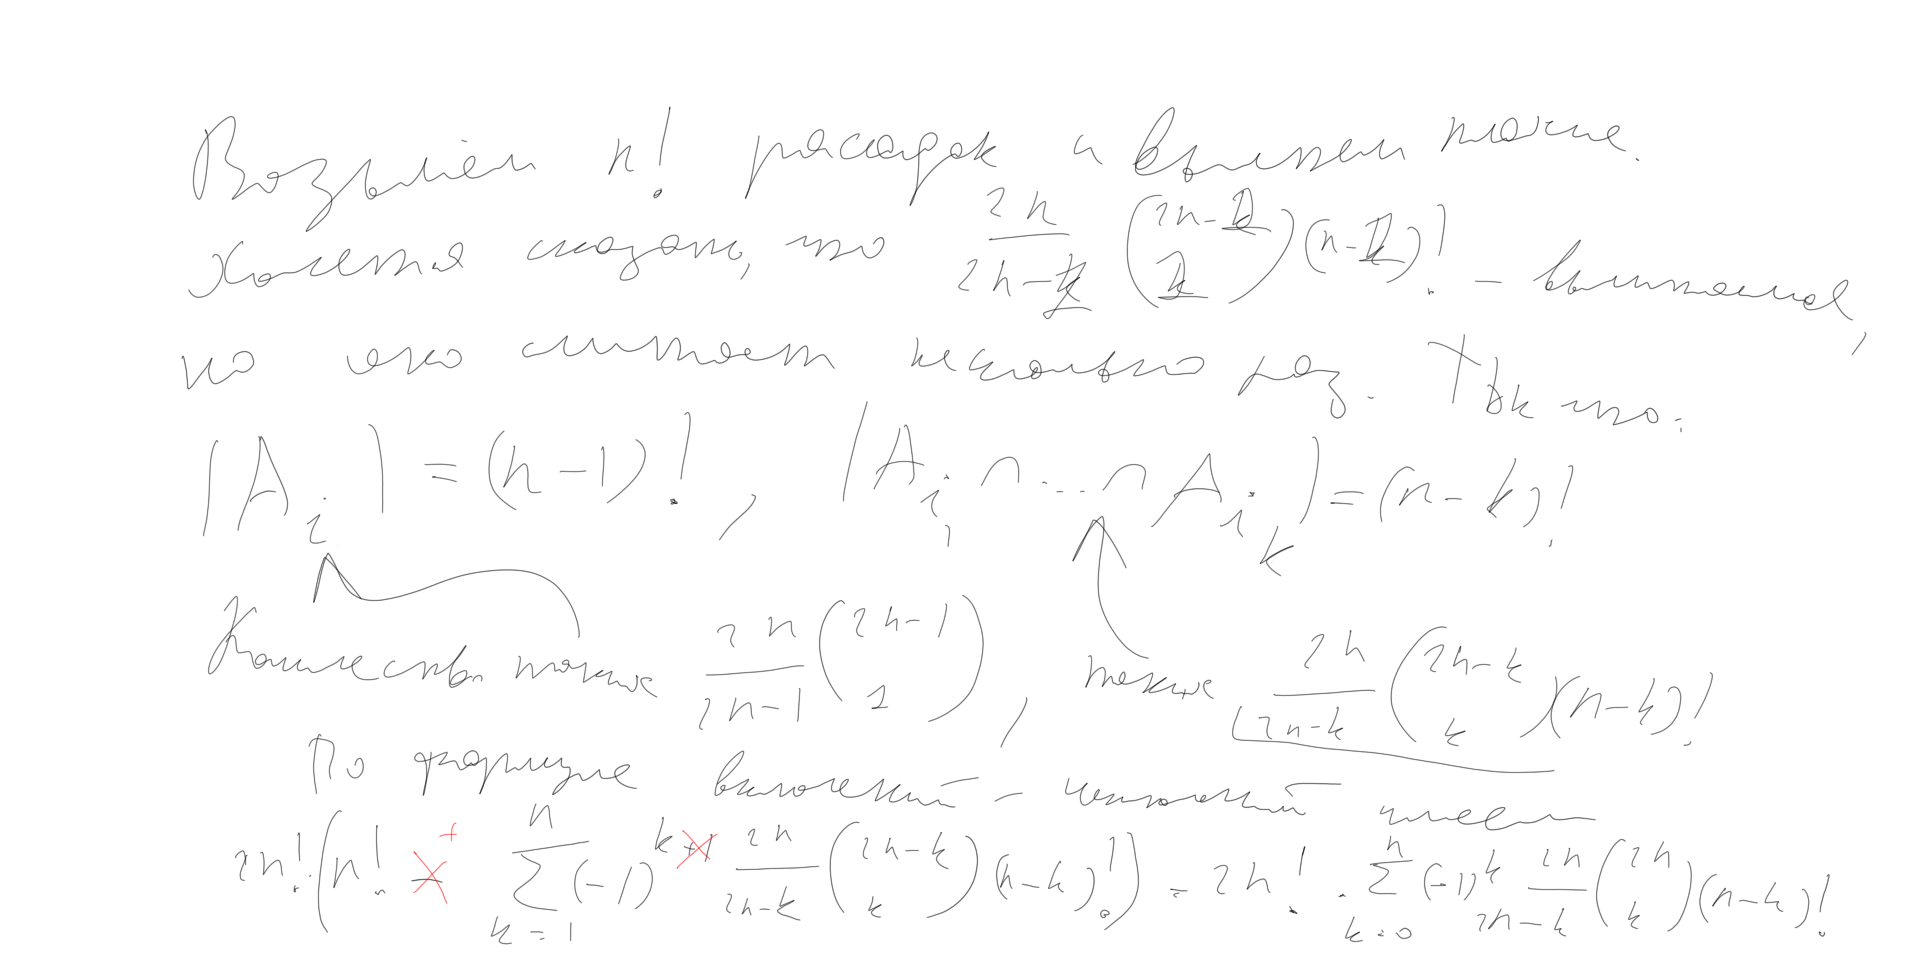 Возьмём n! рассадок и вычтем плохие.
Хочется сказать, что \frac{2n}{2n-1} \binom{2n-1}{1} (n-1)! – вычитаемое,
но оно считает несколько раз. Так что:
|A_i| = (n-1)!, |A_{i_1} ∩ ... ∩ A_{i_k}| = (n-k)!
Количество таких \frac{2n}{2n-1} \binom{2n-1}{1}, таких \frac{2n}{2n-k} \binom{2n-k}{k} (n-k)!
По формуле включений – исключений имеем
2n! \left( n! + \sum_{k=1}^{n} (-1)^k \frac{2n}{2n-k} \binom{2n-k}{k} (n-k)! \right) = 2n! \cdot \sum_{k=0}^{n} (-1)^k \frac{2n}{2n-k} \binom{2n}{k} (n-k)!